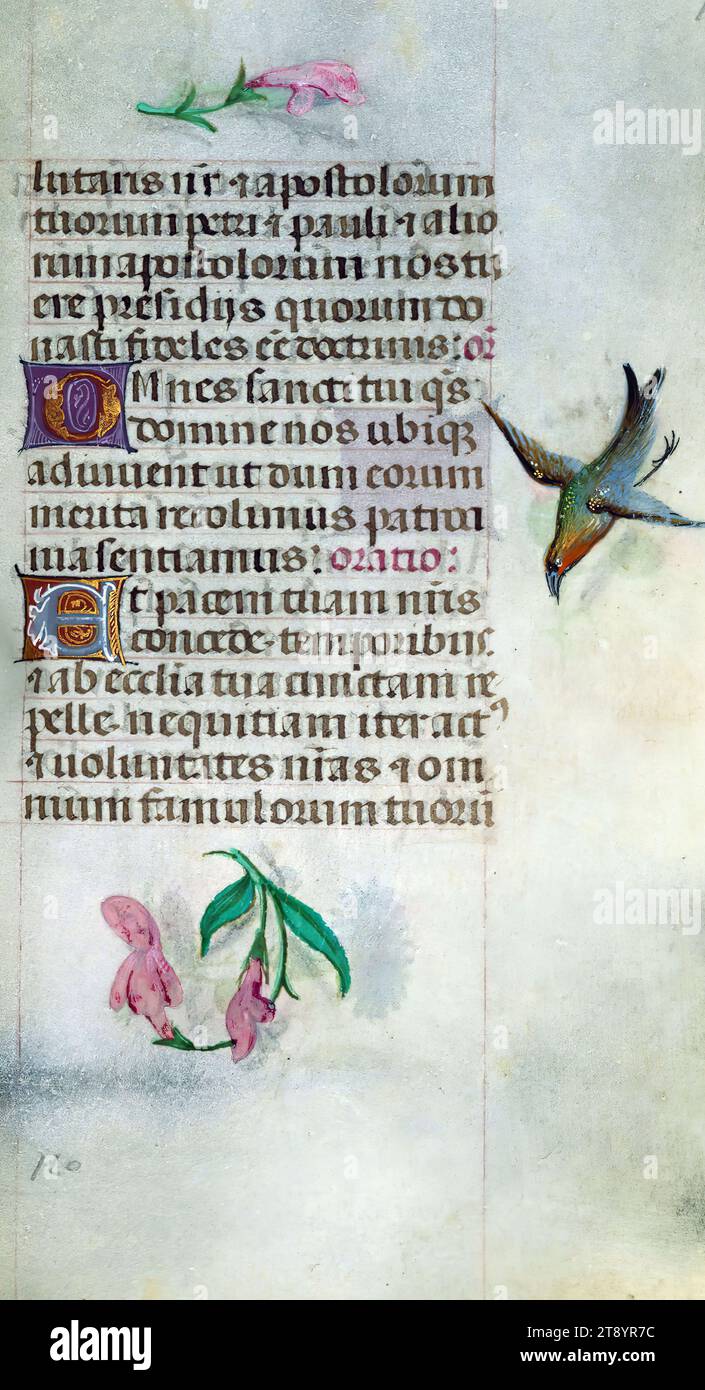 lutaris nr̄ ⁊ apostolorum
tuorum petri ⁊ pauli ⁊ alio
rum apostolorum nos tu
ere presidijs quorum do
nasti fideles eē doctrinis: or̄
OMnes sancti tui q̄s
domine nos ubiqꝫ
adiuuent ut dum eorum
merita recolimus patroci
nia sentiamus: oratio:
Et pacem tuam nr̄is
concede temporibus
⁊ ab ecclīa tua cunctam re
pelle nequitiam iter actꝰ
⁊ uoluntates nr̄as ⁊ om
nium famulorum tuorū
120
alamy
alamy
alamy
Image ID: 2T8YR7C
www.alamy.com